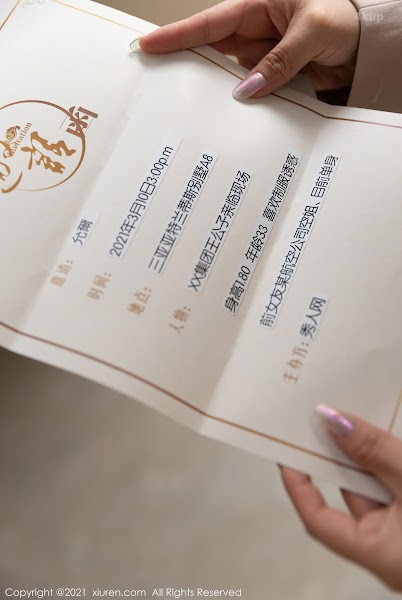 邀请函
邀请: 允爾
时间: 2021年3月10日3:00p.m
地点: 三亚亚特兰蒂斯别墅A8
人物: XX集团王公子亲临现场
身高1.80 年龄33 喜欢制服诱惑
前女友某航空公司空姐、目前单身
主办方: 秀人网
Copyright @2021 xiuren.com All Rights Reserved